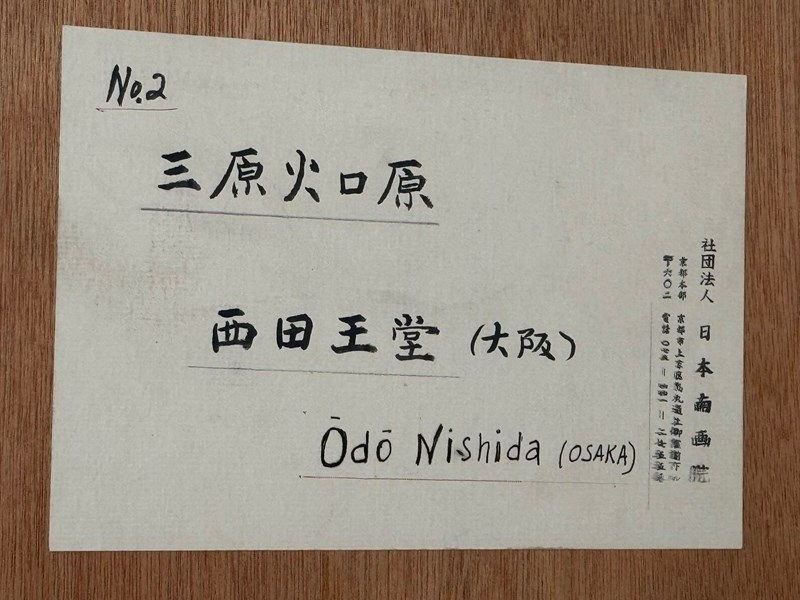 No.2
三原火口原
西田王堂 (大阪)
Ōdō Nishida (OSAKA)
社団法人 日本南画院
京都本部 京都市上京区烏丸通
〒六〇二 電話〇七五